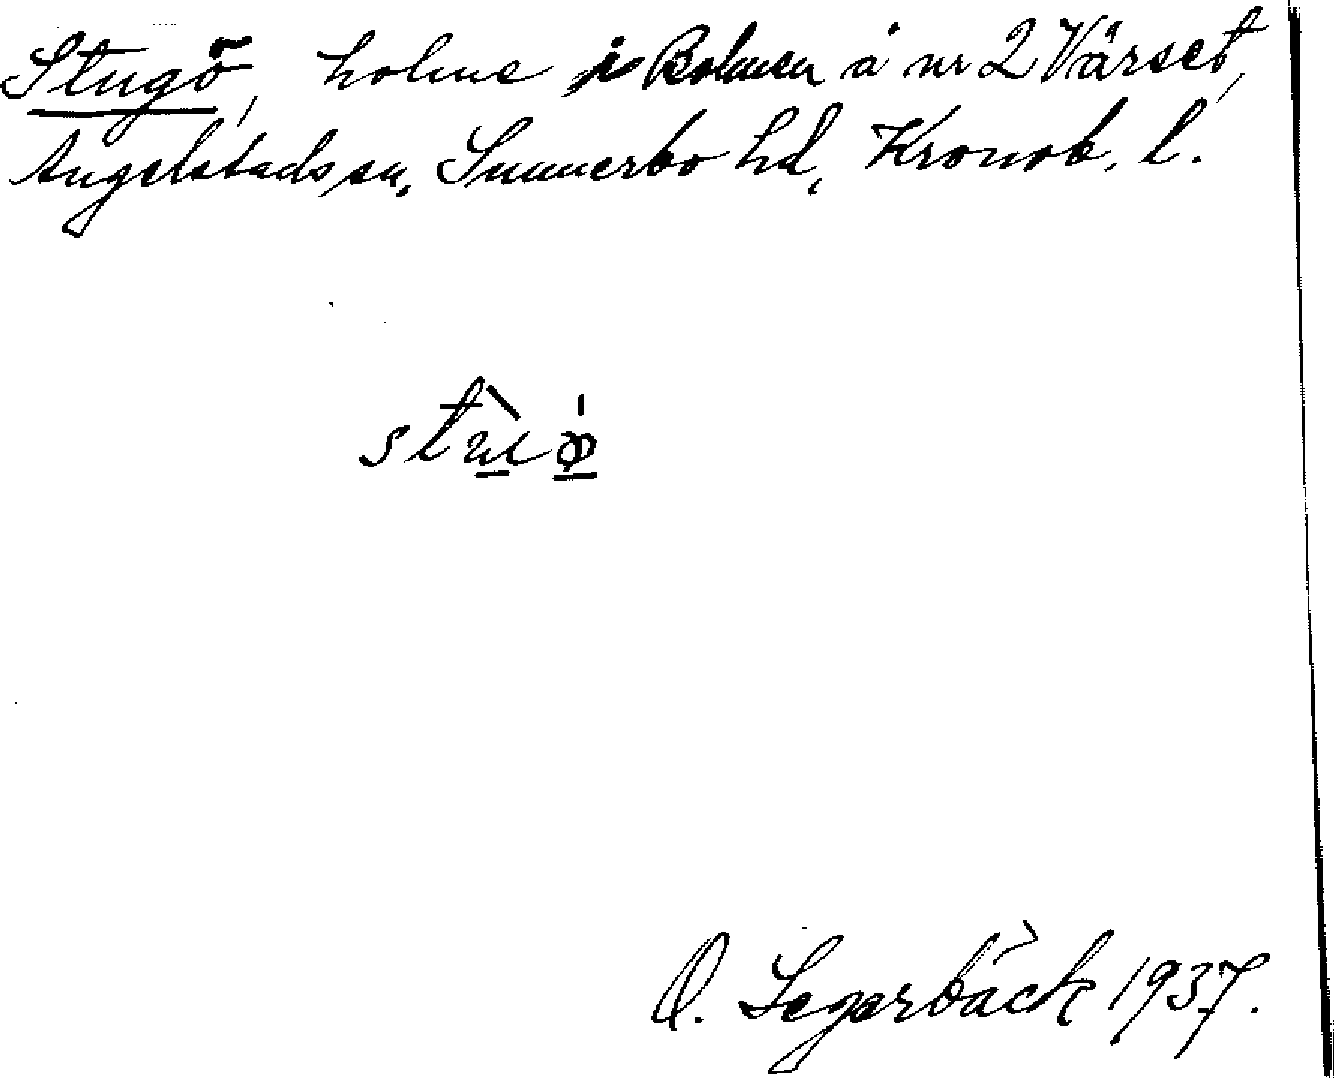 Stugö, holme i Bolmen å nr 2 Värset,
Angelstads sn, Sunnerbo hd, Kronob. l.
O. Segerbäck 1937.